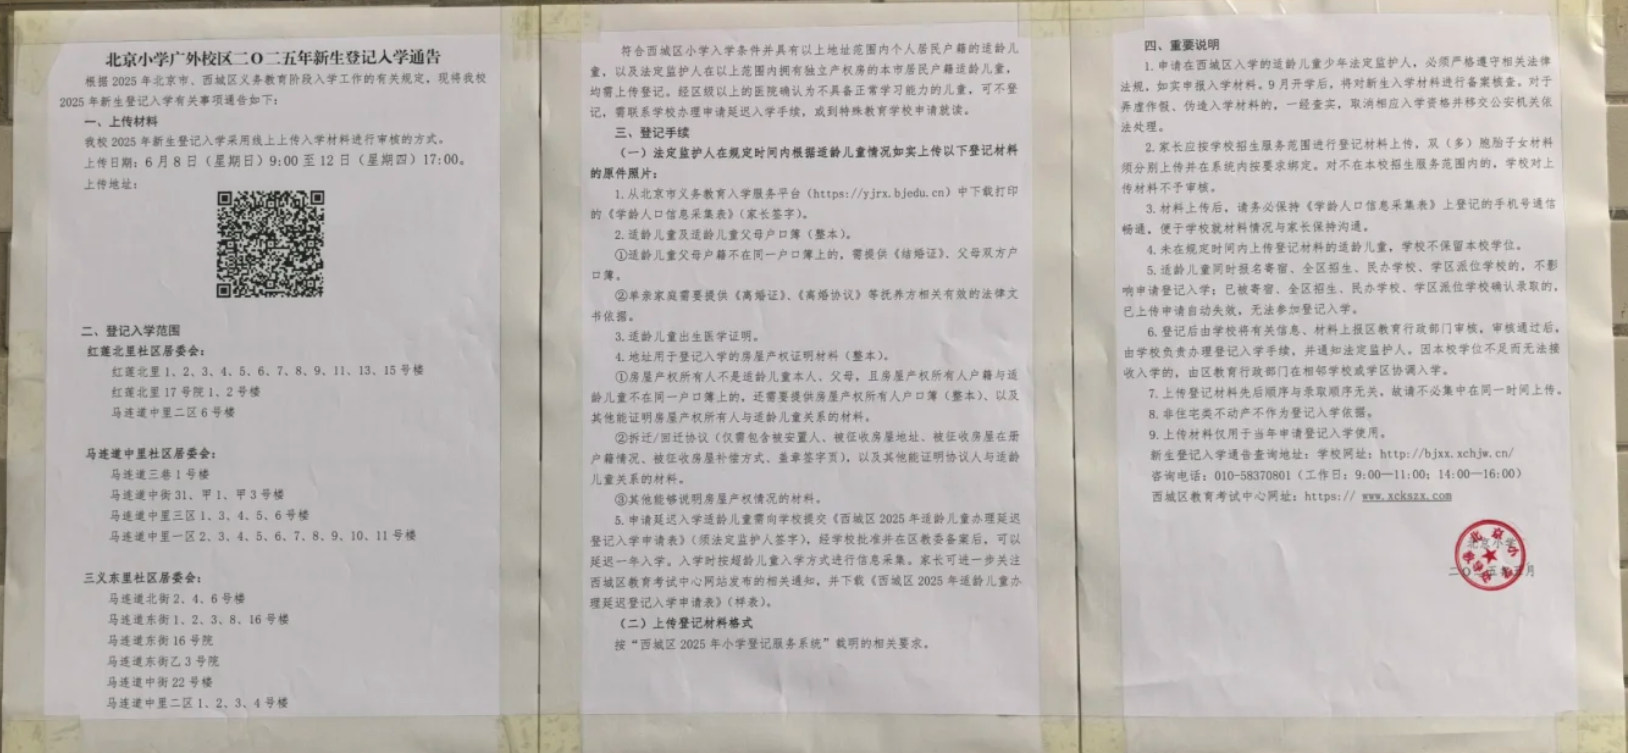 北京小学广外校区二〇二五年新生登记入学通告
根据 2025 年北京市、西城区义务教育阶段入学工作的有关规定，现将我校
2025 年新生登记入学有关事项通告如下：
一、上传材料
我校 2025 年新生登记入学采用线上上传入学材料进行审核的方式。
上传日期：6 月 8 日（星期日）9:00 至 12 日（星期四）17:00。
上传地址：
二、登记入学范围
红莲北里社区居委会：
红莲北里 1、2、3、4、5、6、7、8、9、11、13、15 号楼
红莲北里 17 号院 1、2 号楼
马连道中里二区 6 号楼
马连道中里社区居委会：
马连道三巷 1 号楼
马连道中街 31、甲 1、甲 3 号楼
马连道中里三区 1、3、4、5、6 号楼
马连道中里一区 2、3、4、5、6、7、8、9、10、11 号楼
三义东里社区居委会：
马连道北街 2、4、6 号楼
马连道东街 1、2、3、8、16 号楼
马连道东街 16 号院
马连道东街乙 3 号院
马连道中街 22 号楼
马连道中里二区 1、2、3、4 号楼
符合西城区小学入学条件并具有以上地址范围内个人居民户籍的适龄儿
童，以及法定监护人在以上范围内拥有独立产权房的本市居民户籍适龄儿童，
均需上传登记。经区级以上的医院确认为不具备正常学习能力的儿童，可不登
记，需联系学校办理申请延迟入学手续，或到特殊教育学校申请就读。
三、登记手续
（一）法定监护人在规定时间内根据适龄儿童情况如实上传以下登记材料
的原件照片：
1.从北京市义务教育入学服务平台（https://yjrx.bjedu.cn）中下载打印
的《学龄人口信息采集表》（家长签字）。
2.适龄儿童及适龄儿童父母户口簿（整本）。
①适龄儿童父母户籍不在同一户口簿上的，需提供《结婚证》、父母双方户
口簿。
②单亲家庭需要提供《离婚证》、《离婚协议》等抚养方相关有效的法律文
书依据。
3.适龄儿童出生医学证明。
4.地址用于登记入学的房屋产权证明材料（整本）。
①房屋产权所有人不是适龄儿童本人、父母，且房屋产权所有人户籍与适
龄儿童不在同一户口簿上的，还需要提供房屋产权所有人户口簿（整本）、以及
其他能证明房屋产权所有人与适龄儿童关系的材料。
②拆迁/回迁协议（仅需包含被安置人、被征收房屋地址、被征收房屋在册
户籍情况、被征收房屋补偿方式、盖章签字页），以及其他能证明协议人与适龄
儿童关系的材料。
③其他能够说明房屋产权情况的材料。
5.申请延迟入学适龄儿童需向学校提交《西城区 2025 年适龄儿童办理延迟
登记入学申请表》（须法定监护人签字），经学校批准并在区教委备案后，可以
延迟一年入学。入学时按超龄儿童入学方式进行信息采集。家长可进一步关注
西城区教育考试中心网站发布的相关通知，并下载《西城区 2025 年适龄儿童办
理延迟登记入学申请表》（样表）。
（二）上传登记材料格式
按“西城区 2025 年小学登记服务系统”载明的相关要求。
四、重要说明
1.申请在西城区入学的适龄儿童少年法定监护人，必须严格遵守相关法律
法规，如实申报入学材料。9 月开学后，将对新生入学材料进行备案核查。对于
弄虚作假、伪造入学材料的，一经查实，取消相应入学资格并移交公安机关依
法处理。
2.家长应按学校招生服务范围进行登记材料上传，双（多）胞胎子女材料
须分别上传并在系统内按要求绑定。对不在本校招生服务范围内的，学校对上
传材料不予审核。
3.材料上传后，请务必保持《学龄人口信息采集表》上登记的手机号通信
畅通，便于学校就材料情况与家长保持沟通。
4.未在规定时间内上传登记材料的适龄儿童，学校不保留本校学位。
5.适龄儿童同时报名寄宿、全区招生、民办学校、学区派位学校的，不影
响申请登记入学；已被寄宿、全区招生、民办学校、学区派位学校确认录取的，
已上传申请自动失效，无法参加登记入学。
6.登记后由学校将有关信息、材料上报区教育行政部门审核，审核通过后，
由学校负责办理登记入学手续，并通知法定监护人。因本校学位不足而无法接
收入学的，由区教育行政部门在相邻学校或学区协调入学。
7.上传登记材料先后顺序与录取顺序无关，故请不必集中在同一时间上传。
8.非住宅类不动产不作为登记入学依据。
9.上传材料仅用于当年申请登记入学使用。
新生登记入学通告查询地址：学校网址：http://bjxx.xchjw.cn/
咨询电话：010-58370801（工作日：9:00—11:00；14:00—16:00）
西城区教育考试中心网址：https:// www.xckszx.com
北京小学
二〇二五年五月